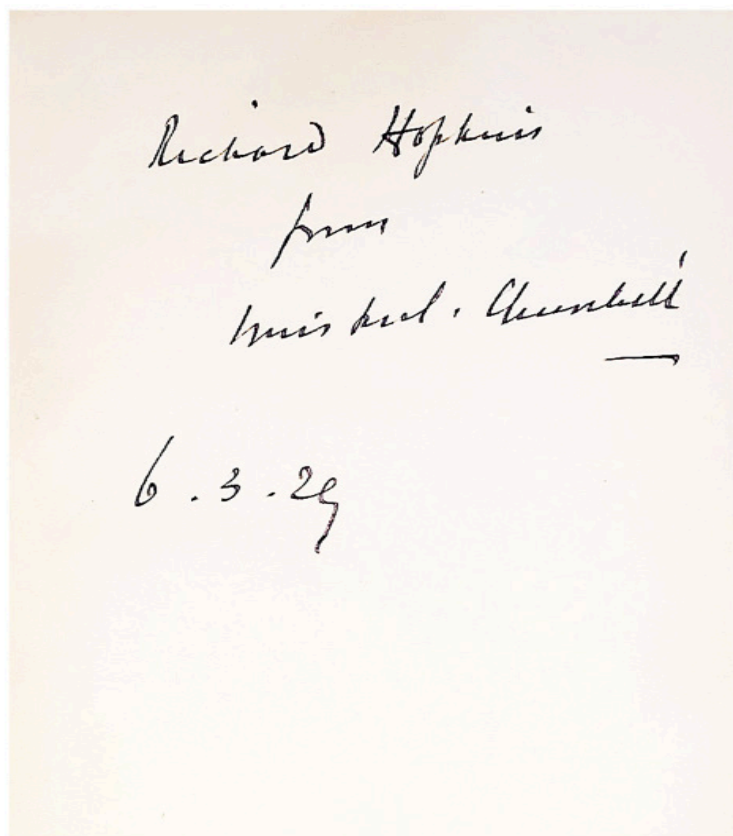 Richard Hopkins
from
Winston S. Churchill
6.3.29